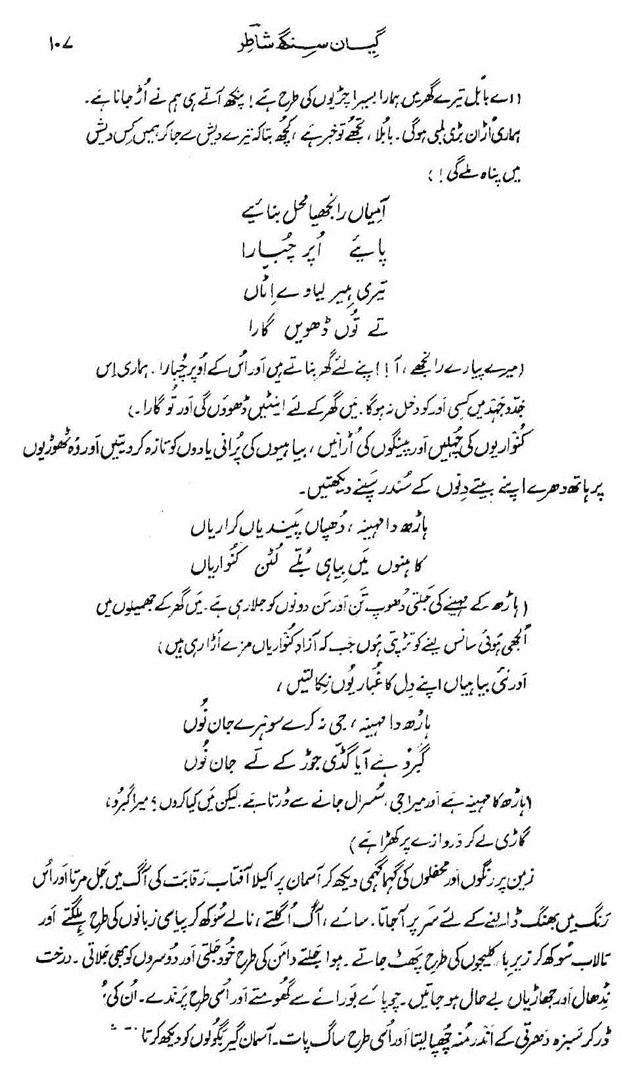 گیان سنگھ شاطر ۱۰۷
(اے بابل تیرے گھر میں ہمارا بسیرا چڑیوں کی طرح ہے! پنکھ آتے ہی ہم نے اُڑ جانا ہے۔
ہماری اُڑان بڑی لمبی ہوگی۔ بابلا، تجھے تو خبر ہے، کچھ بتا کہ تیرے دیش سے جا کر ہمیں کس دیش
میں پناہ ملے گی!)
آمیاں رانجھیا محل بنائیے
پایئے اُپر چُبارا
تیری ہیر لیاوے اِٹاں
تے تُوں ڈھویں گارا
(میرے پیارے رانجھے، آ! اپنے لئے گھر بناتے ہیں اور اُس کے اُوپر چُبارا۔ ہماری اِس
جدّوجہد میں کسی اور کو دخل نہ ہوگا۔ میں گھر کے لئے اینٹیں ڈھوؤں گی اور تُو گارا۔)
کنواریوں کی چُہلیں اور پینگوں کی اُڑانیں، بیاہیوں کی پُرانی یادوں کو تازہ کر دیتیں اور وہ ٹھوڑیوں
پر ہاتھ دھرے اپنے بیتے دِنوں کے سُندر سَپنے دیکھتیں۔
ہاڑھ دا مہینہ، دُھپاں پَیندیاں کراریاں
کاہنوں مَیں بیاہی بُلّے لُٹن کنواریاں
(ہاڑھ کے مہینے کی جلتی دُھوپ تن اور من دونوں کو جلا رہی ہے۔ میں گھر کے جھمیلوں میں
اُلجھی ہوئی سانس لینے کو تڑپتی ہُوں جب کہ آزاد کنواریاں مزے اُڑا رہی ہیں)
اور نئی بیاہیاں اپنے دِل کا غُبار یُوں نکالتیں،
ہاڑھ دا مہینہ، جی نہ کرے سوہرے جان نُوں
گبرو ہے آیا گڈی جوڑ کے لَے جان نُوں
(ہاڑھ کا مہینہ ہے اور میرا جی، سُسرال جانے سے ڈرتا ہے۔ لیکن میں کیا کروں؟ میرا گبرُو،
گاڑی لے کر دروازے پر کھڑا ہے)
زمین پر رنگوں اور محفلوں کی گہما گہمی دیکھ کر آسمان پر اکیلا آفتاب رقابت کی آگ میں جل مرتا اور اُس
رنگ میں بھنگ ڈالنے کے لئے سر پر آ جاتا۔ سائے، آگ اُگلتے، نالے سُوکھ کر پیاسی زبانوں کی طرح بِلکتے اور
تالاب سُوکھ کر زہر باد کلیجوں کی طرح پھٹ جاتے۔ ہوا جلتے دامن کی طرح خُود جلتی اور دوسروں کو بھی جلاتی۔ درخت
نڈھال اور جھاڑیاں بے حال ہو جاتیں۔ چوپائے بَورائے سے گھومتے اور اُسی طرح پرندے۔ اُن کی
ڈر کر سبزہ دھرتی کے اندر مُنہ چُھپا لیتا اور اُسی طرح ساگ پات۔ آسمان گیر بگولوں کو دیکھ کر